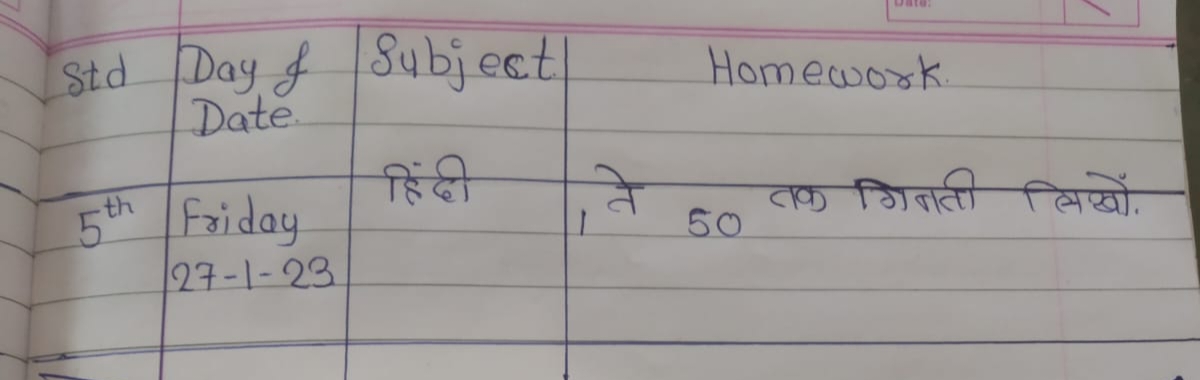 Date:
Std Day & Subject Homework.
Date.
हिंदी 1 ते 50 तक गिनती लिखों.
5th Friday
27-1-23